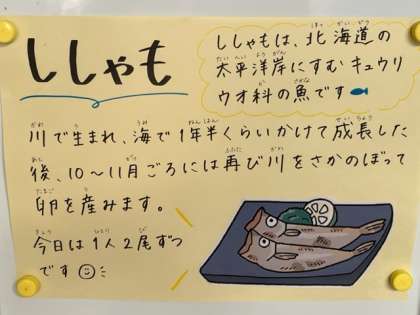 ししゃも
ししゃもは、北海道の
太平洋岸にすむキュウリ
ウオ科の魚です
川で生まれ、海で1年半くらいかけて成長した
後、10〜11月ごろには再び川をさかのぼって
卵を産みます。
今日は1人2尾ずつ
です